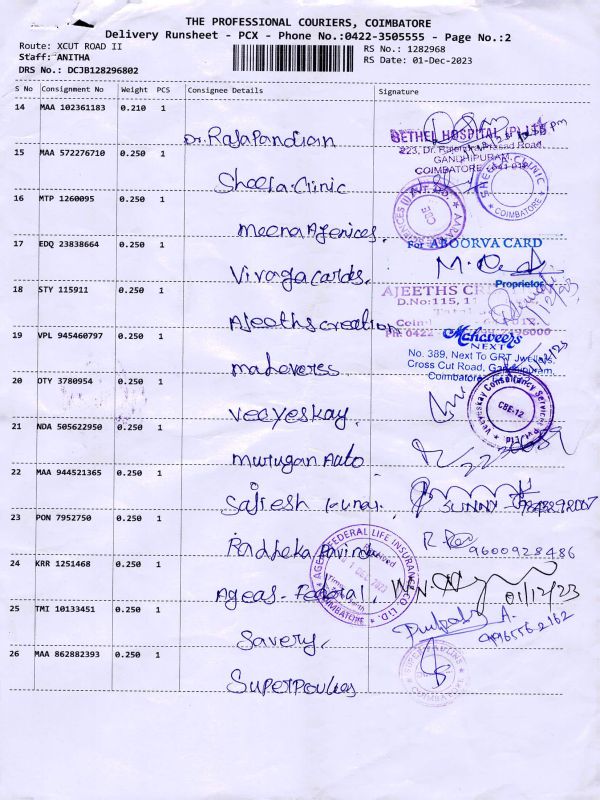 THE PROFESSIONAL COURIERS, COIMBATORE
Delivery Runsheet - PCX - Phone No.:0422-3505555 - Page No.:2
Route: XCUT ROAD II
RS No.: 1282968
Staff: ANITHA
RS Date: 01-Dec-2023
DRS No.: DCJB128296802
S No Consignment No Weight PCS Consignee Details Signature
14 MAA 102361183 0.210 1
Dr. Rajapandian
BETHEL HOSPITAL (P) LTD
223, Dr. Rajendra Prasad Road,
GANDHIPURAM,
COIMBATORE - 641 012
15 MAA 572276710 0.250 1
Sheela.Clinic
SHEELA CLINIC
* COIMBATORE *
16 MTP 1260095 0.250 1
Meena Agenices.
17 EDQ 23838664 0.250 1
For APOORVA CARD
Proprietor
Vivaga cards.
18 STY 115911 0.250 1
AJEETHS
D.No:115, 11
Ajeethscreation
19 VPL 945460797 0.250 1
Mahaveers
NEXT
No. 389, Next To GRT Jwellers,
Cross Cut Road, Gandhipuram,
Coimbatore
maheverss
20 OTY 3780954 0.250 1
Veeyeskay Consultancy Services
CBE-12
veeyeskay.
21 NDA 505622950 0.250 1
murugan Auto.
22 MAA 944521365 0.250 1
Sajeesh kunar.
SUNNY
23 PON 7952750 0.250 1
Radheka Ravin
9600928486
24 KRR 1251468 0.250 1
AGEAS FEDERAL LIFE INSURANCE CO. LTD.
COIMBATORE
Ageas - Federal.
01/12/23
25 TMI 10133451 0.250 1
A.
Savery.
26 MAA 862882393 0.250 1
COIMBATORE
Superpoukes